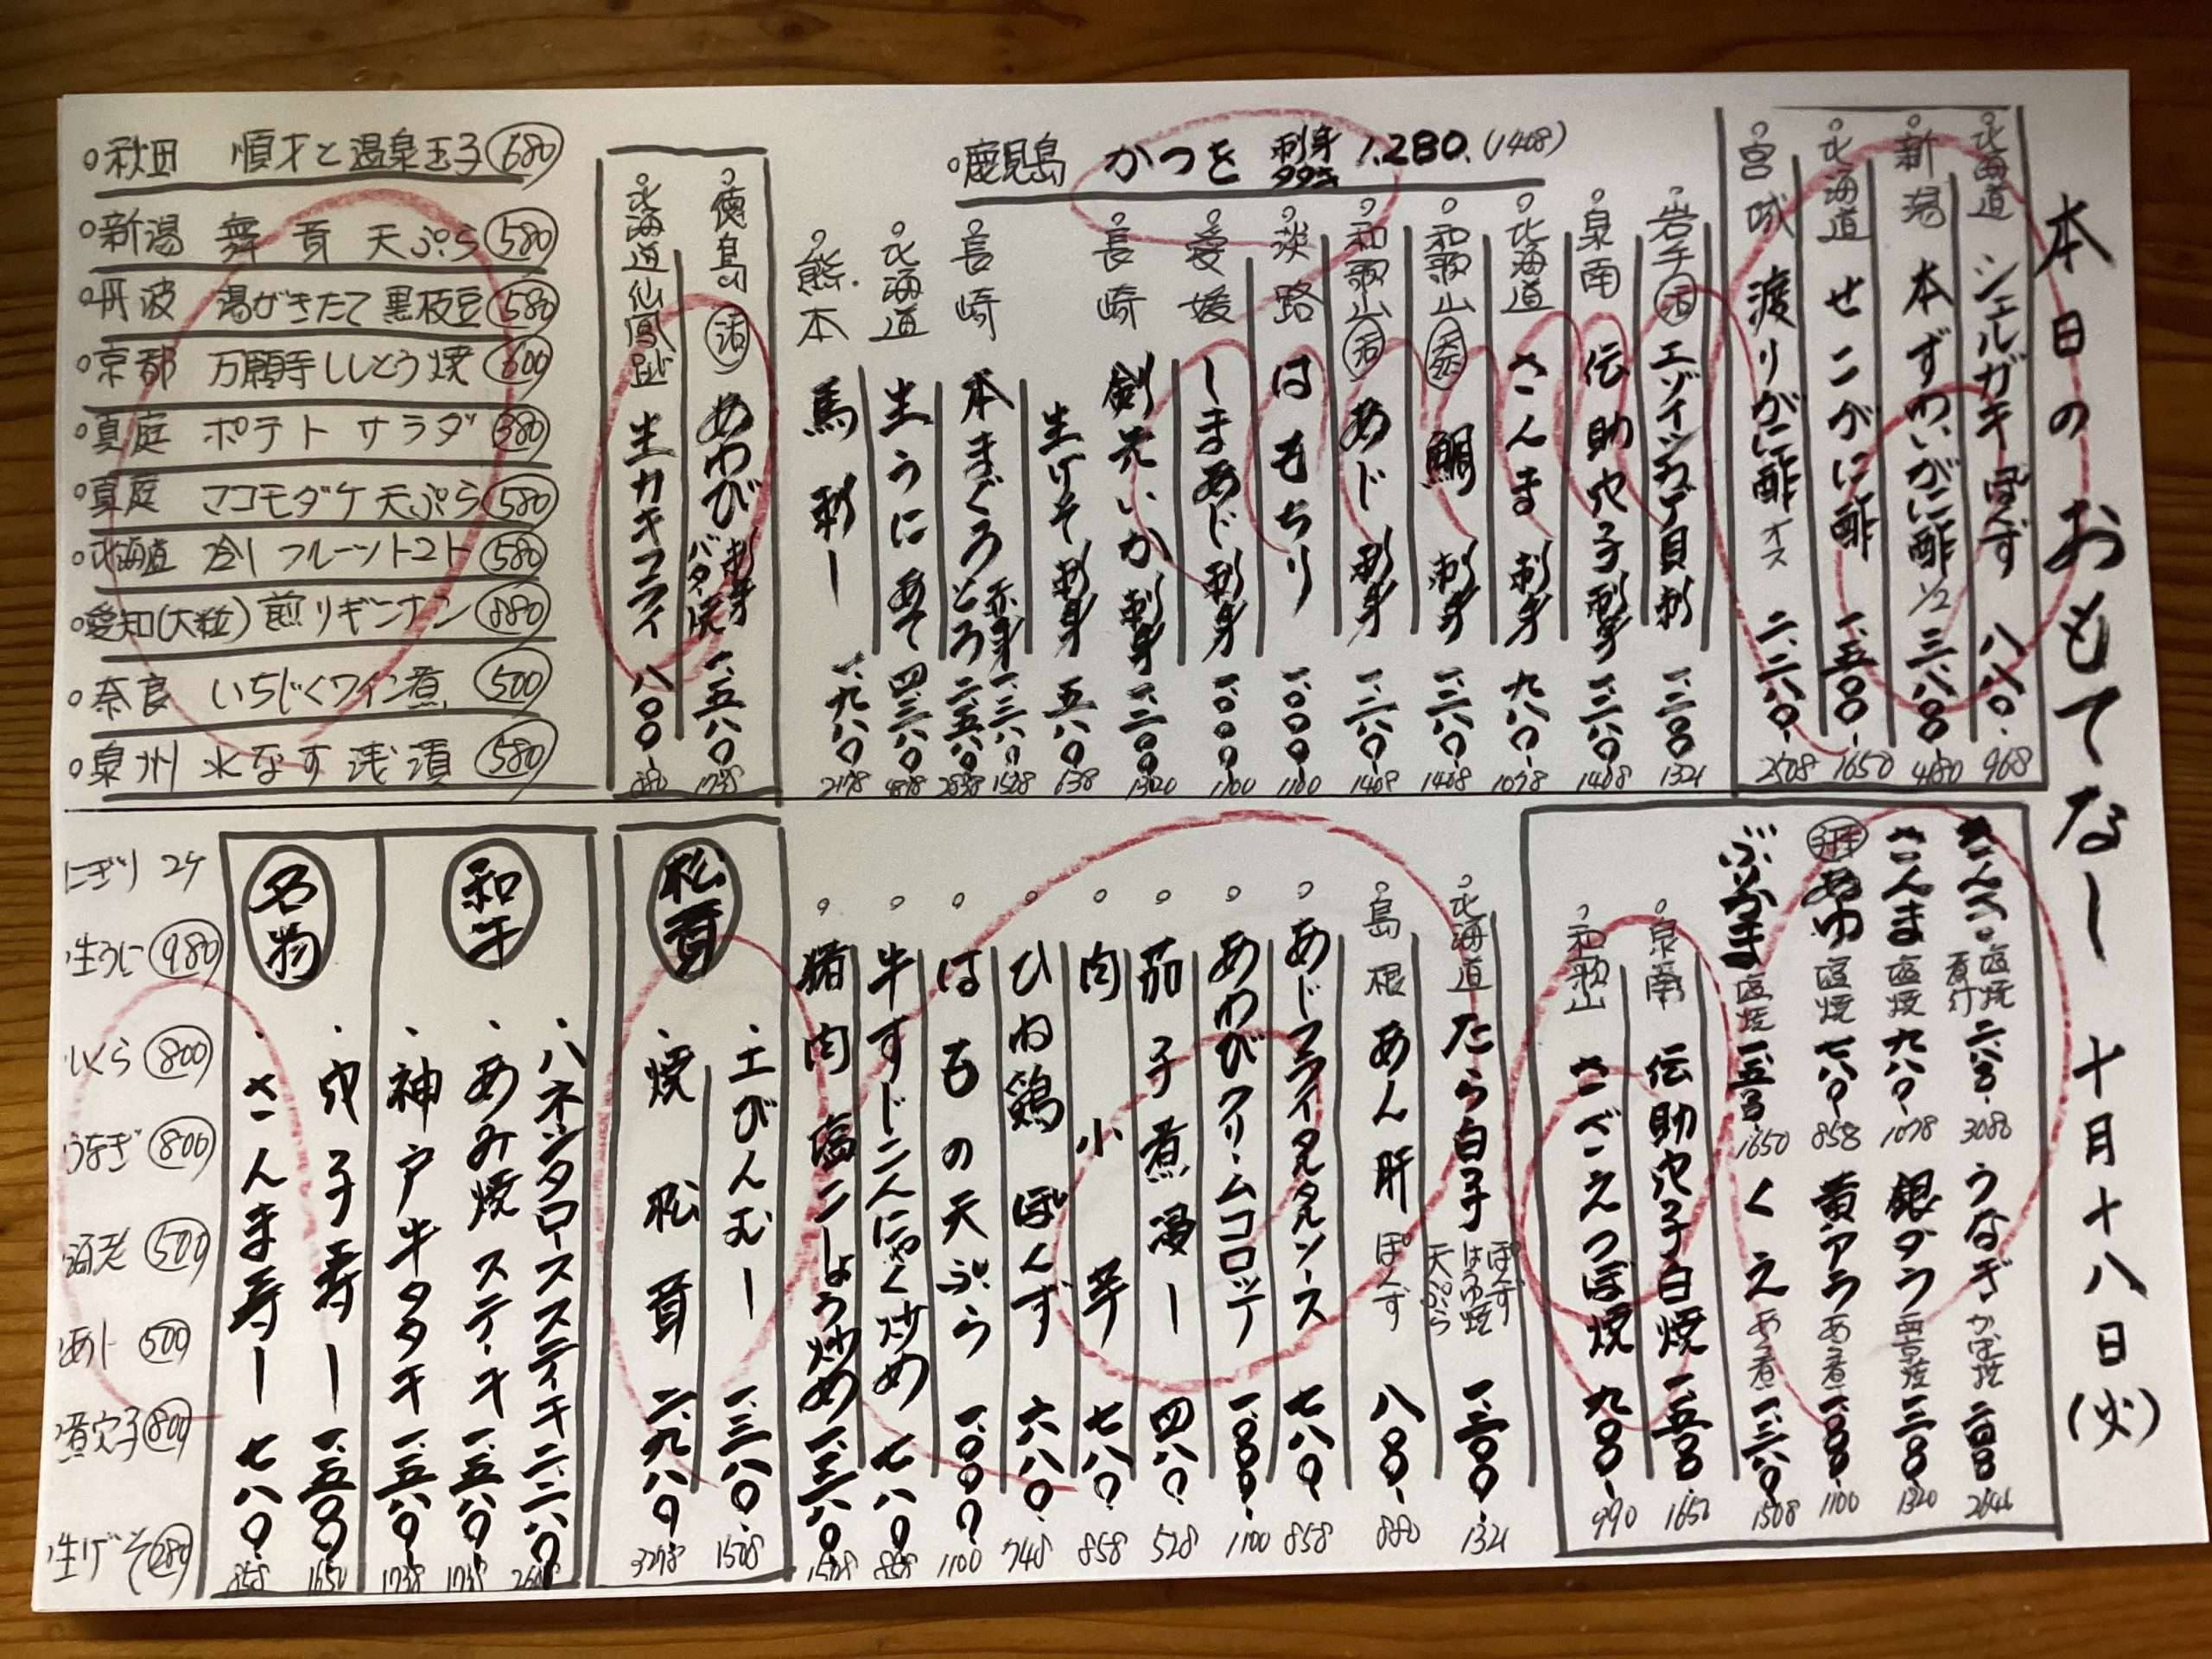 本日のおもてなし 十月十八日(火)
北海道 シェルガキ ぽんず 八八〇 968
新潟 本ずわいがに酢 1/2 三.八〇〇 4180
北海道 せこがに酢 一.五〇〇 1650
宮城 渡りがに酢 オス 二.二八〇 2508
鹿児島 かつを 刺身 タタキ 1.280.(1408)
岩手 活 エゾイシカゲ貝 刺 一.二〇〇 1321
泉南 伝助穴子 刺身 一.二八〇 1408
北海道 さんま 刺身 九八〇 1078
和歌山 天然 鯛 刺身 一.二八〇 1408
和歌山 活 あじ 刺身 一.二八〇 1408
淡路 はもちり 一.〇〇〇 1100
愛媛 しまあじ 刺身 一.〇〇〇 1100
長崎 剣先いか 刺身 一.二〇〇 1320
生げそ 刺身 五八〇 638
長崎 本まぐろ 赤身 一.三八〇 1508
とろ 二.五八〇 2838
北海道 生うに あて 四.三八〇 4818
熊本 馬刺し 一.九八〇 2178
徳島 活 あわび 刺身 バター焼 一.五八〇 1738
北海道仙鳳趾 生カキフライ 八〇〇 880
秋田 順才と温泉玉子 680
新潟 舞茸 天ぷら 580
丹波 湯がきたて 黒枝豆 580
京都 万願寺ししとう焼 600
真庭 ポテトサラダ 380
真庭 マコモダケ 天ぷら 580
北海道 冷し フルーツトマト 580
愛知(大粒) 煎りギンナン 880
奈良 いちじくワイン煮 500
泉州 水なす 浅漬 580
塩焼 煮付 二.八〇〇 3080
さんま 塩焼 九八〇 1078
あゆ 塩焼 七八〇 858
ぶりかま 塩焼 一.五〇〇 1650
うなぎ かば焼 2646
銀ダラ 西京焼 一.二〇〇 1320
黄アラ あら煮 一.〇〇〇 1100
くえ あら煮 1508
泉南 伝助穴子 白焼 一.五〇〇 1650
和歌山 さざえつぼ焼 九〇〇 990
北海道 たら白子 ぽんず ほうば焼 天ぷら 一.二〇〇 1321
島根 あん肝 ぽんず 八〇〇 880
あじフライ タルタルソース 七八〇 858
あわびクリームコロッケ 一.〇〇〇 1100
茄子煮浸し 四八〇 528
肉小芋 七八〇 858
ひね鶏ぽんず 六八〇 748
はもの天ぷら 一.〇〇〇 1100
牛すじこんにゃく炒め 七八〇 858
猪肉 塩こしょう炒め
松茸
土びんむし 一.三八〇 1508
焼松茸 二.九八〇 3278
和牛
ハネシタロースステーキ 二.二八〇
あみ焼ステーキ 一.五八〇 1738
神戸牛タタキ 一.五八〇 1738
名物
穴子寿し 一.五〇〇 1650
さんま寿し 七八〇 858
にぎり 2ケ
生うに 980
いくら 800
うなぎ 800
海老 500
あじ 500
煮穴子 800
生げそ 280